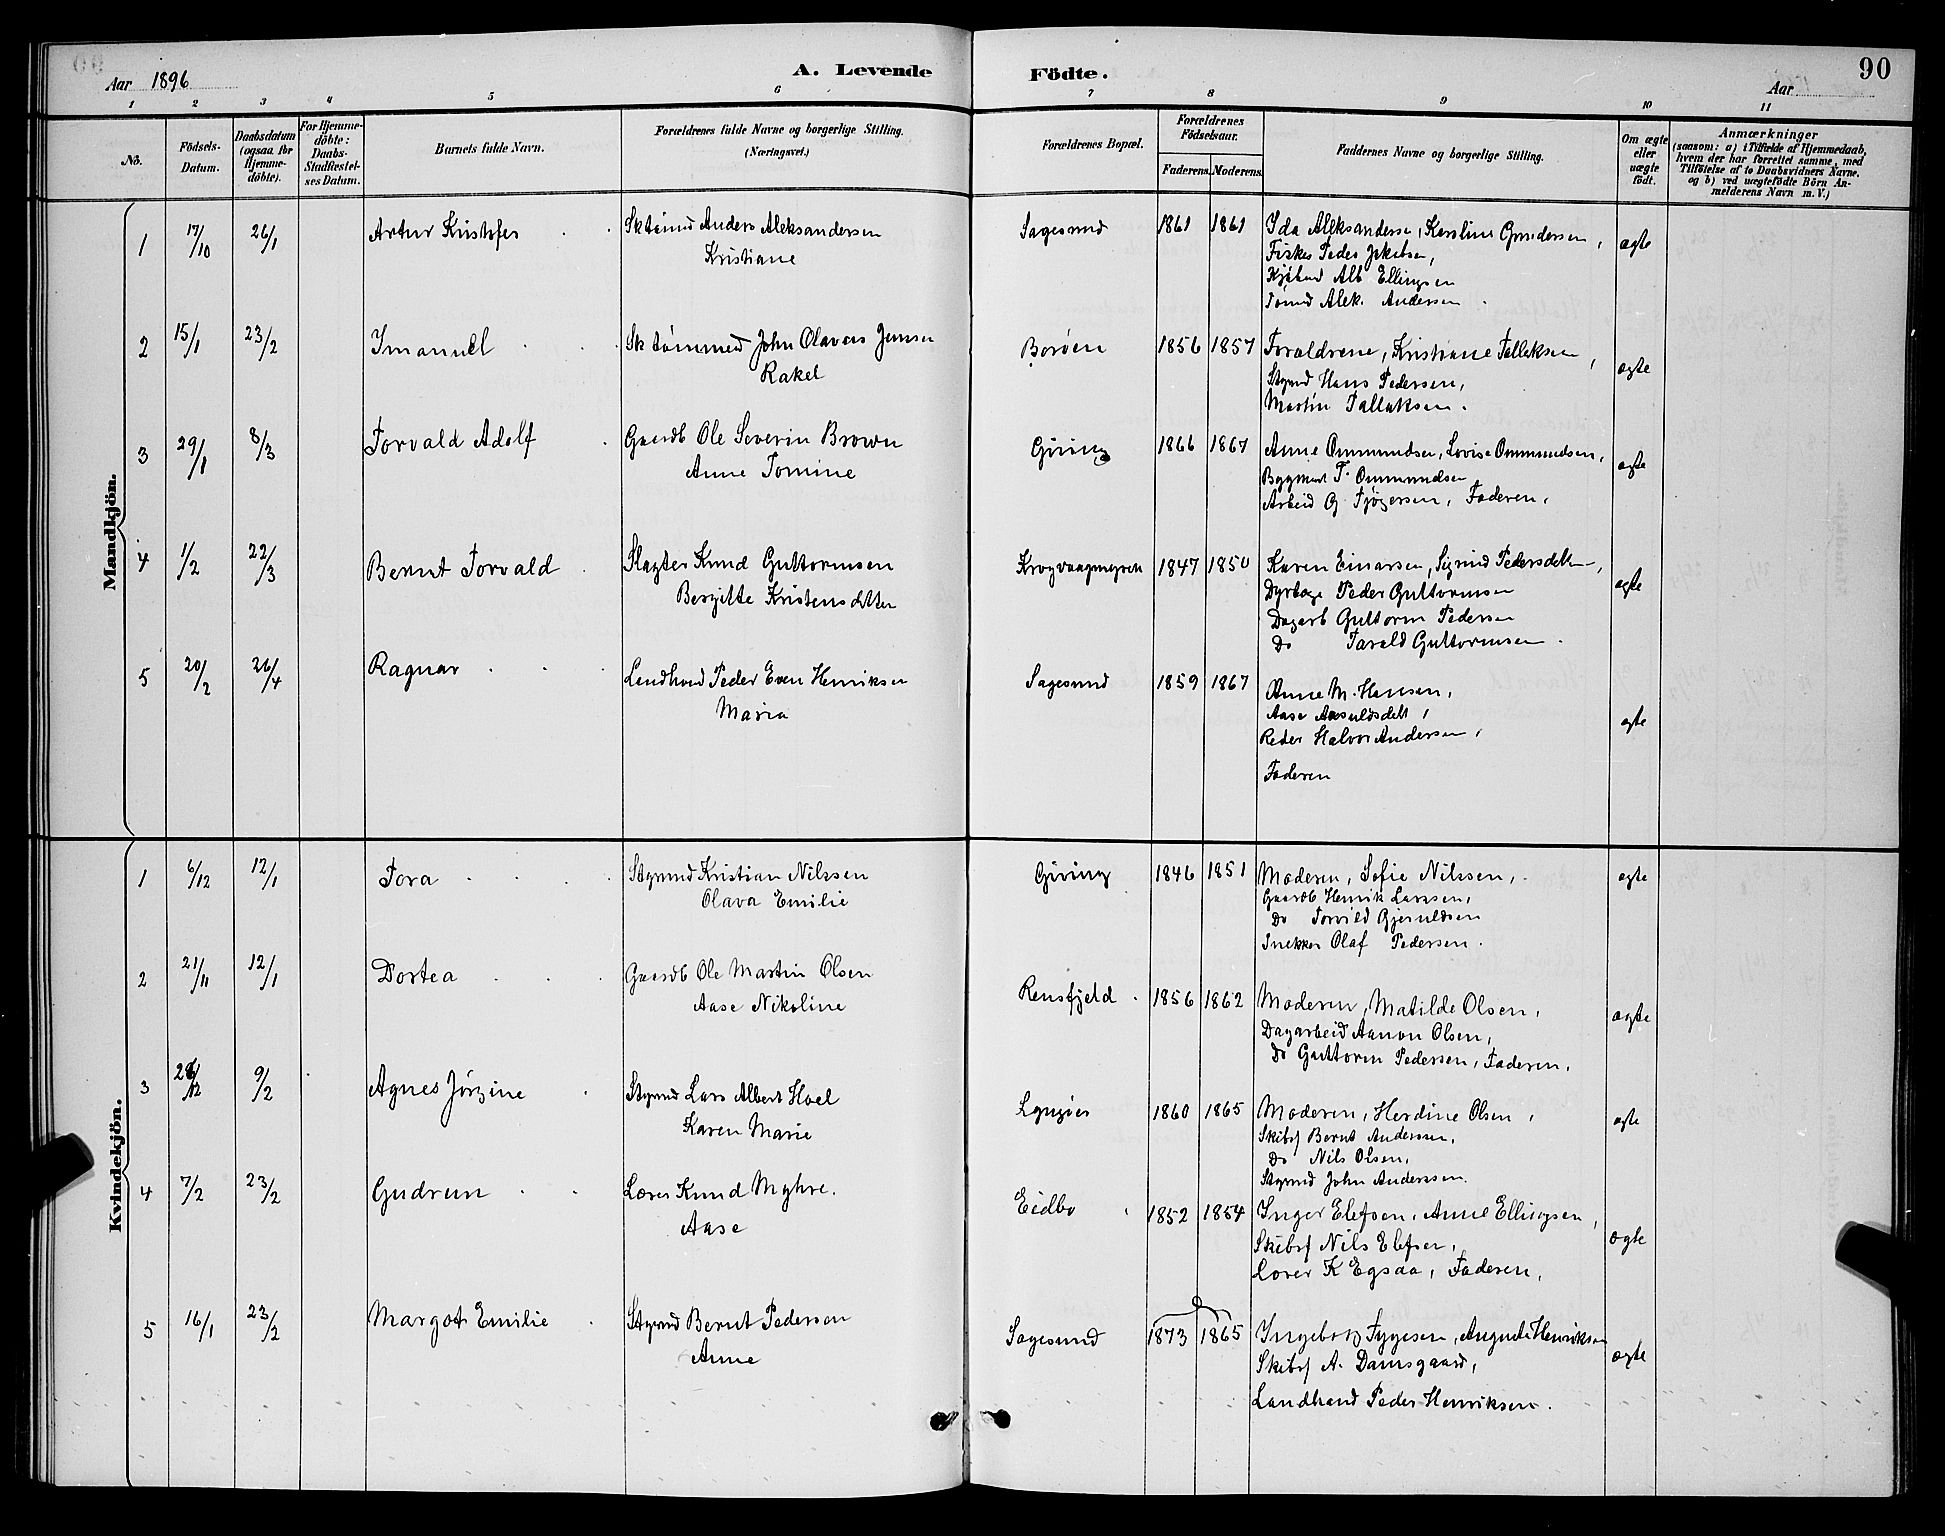 Aar 1896
A. Levende Födte.
90
Aar
1 2 3 4 5 6 7 8 9 10 11
No.
Födsels-Datum.
Daabsdatum (ogsaa for Hjemme-döbte).
For Hjemme-döbte: Daabs-Stadfæstel-ses Datum.
Barnets fulde Navn.
Forældrenes fulde Navne og borgerlige Stilling.
(Næringsvei.)
Forældrenes Bopæl.
Forældrenes Födselsaar.
Faderens. Moderens.
Faddernes Navne og borgerlige Stilling.
Om ægte eller uægte födt.
Anmærkninger
(saasom: a) i Tilfælde af Hjemmedaab,
hvem der har forrettet samme, med
Tilföielse af to Daabsvidners Navne.
og b) ved uægtefödte Börn An-
melderens Navn m. V.)
Mandkjön.
1 17/10 26/1 Artur Kristofer Sktömd Anders Aleksandersen Sagesund 1861 1861 Ida Aleksandersen, Karoline Gundersen, ægte
Kristiane
Fisker Peder Jakobsen,
Alb Ellingsen
Tömd Alek. Andersen
2 15/1 23/2 Imanuel Sk tömmed John Olaves Jensen Boröen 1856 1857 Foraldrene, Kristiane Tallaksen, ægte
Rakel
Stymd Hans Pedersen,
Martin Tallaksen.
3 29/1 8/3 Torvald Adolf Gaardb Ole Severin Brown Giving 1866 1867 Anne Ommundsen, Lovise Ommundsen, ægte
Anne Tomine
Bygmest T. Ommundsen
Arbeid G. Tjögersen, Faderen,
4 1/2 22/3 Bernt Torvald Slagter Knud Guttormsen Krogvaagmyren 1847 1850 Karen Einarsen, Sigrid Pedersdatter, ægte
Bergitte Kristensdatter
Peder Guttormsen
Dagarb Guttorm Pedersen
Do Tarald Guttormsen.
5 20/2 26/4 Ragnar Landhand Peder Even Henriksen Sagesund 1859 1867 Anne M. Hansen, ægte
Maria
Aase Aasuldsdatt,
Reder Halvor Andersen,
Faderen
Kvindekjön.
1 6/12 12/1 Tora Stymd Kristian Nilssen Giving 1846 1851 Moderen, Sofie Nilssen, ægte
Olava Emilie
Gaardb Henrik Larssen,
Do Torvild Gjeruldsen
Snekker Olaf Pedersen.
2 21/11 12/1 Dortea Gaardb Ole Martin Olsen Rensfjeld 1856 1862 Moderen, Matilde Olsen, ægte
Aase Nikoline
Dagarbeid Aanon Olsen,
Do Guttorm Pedersen, Faderen.
3 /12 9/2 Agnes Jörgine Stymd Lars Albert Hoel Lyngöer 1860 1865 Moderen, Herdine Olsen, ægte
Karen Marie
Skibsf Bernt Anderssen,
Do Nils Olsen,
Stymd John Anderssen.
4 7/2 23/2 Gudrun Lærer Knud Myhre. Eidbo 1852 1854 Inger Elefsen, Anne Ellingsen, ægte
Aase
Skibsf Nils Elefsen,
Lærer K Egsaa, Faderen,
5 16/1 23/2 Margot Emilie Stymd Bernt Pederson Sagesund 1873 1865 Ingeborg Tygesen, Auguste Henriksen ægte
Anne
Skibsf A. Damsgaard,
Landhand Peder Henriksen.